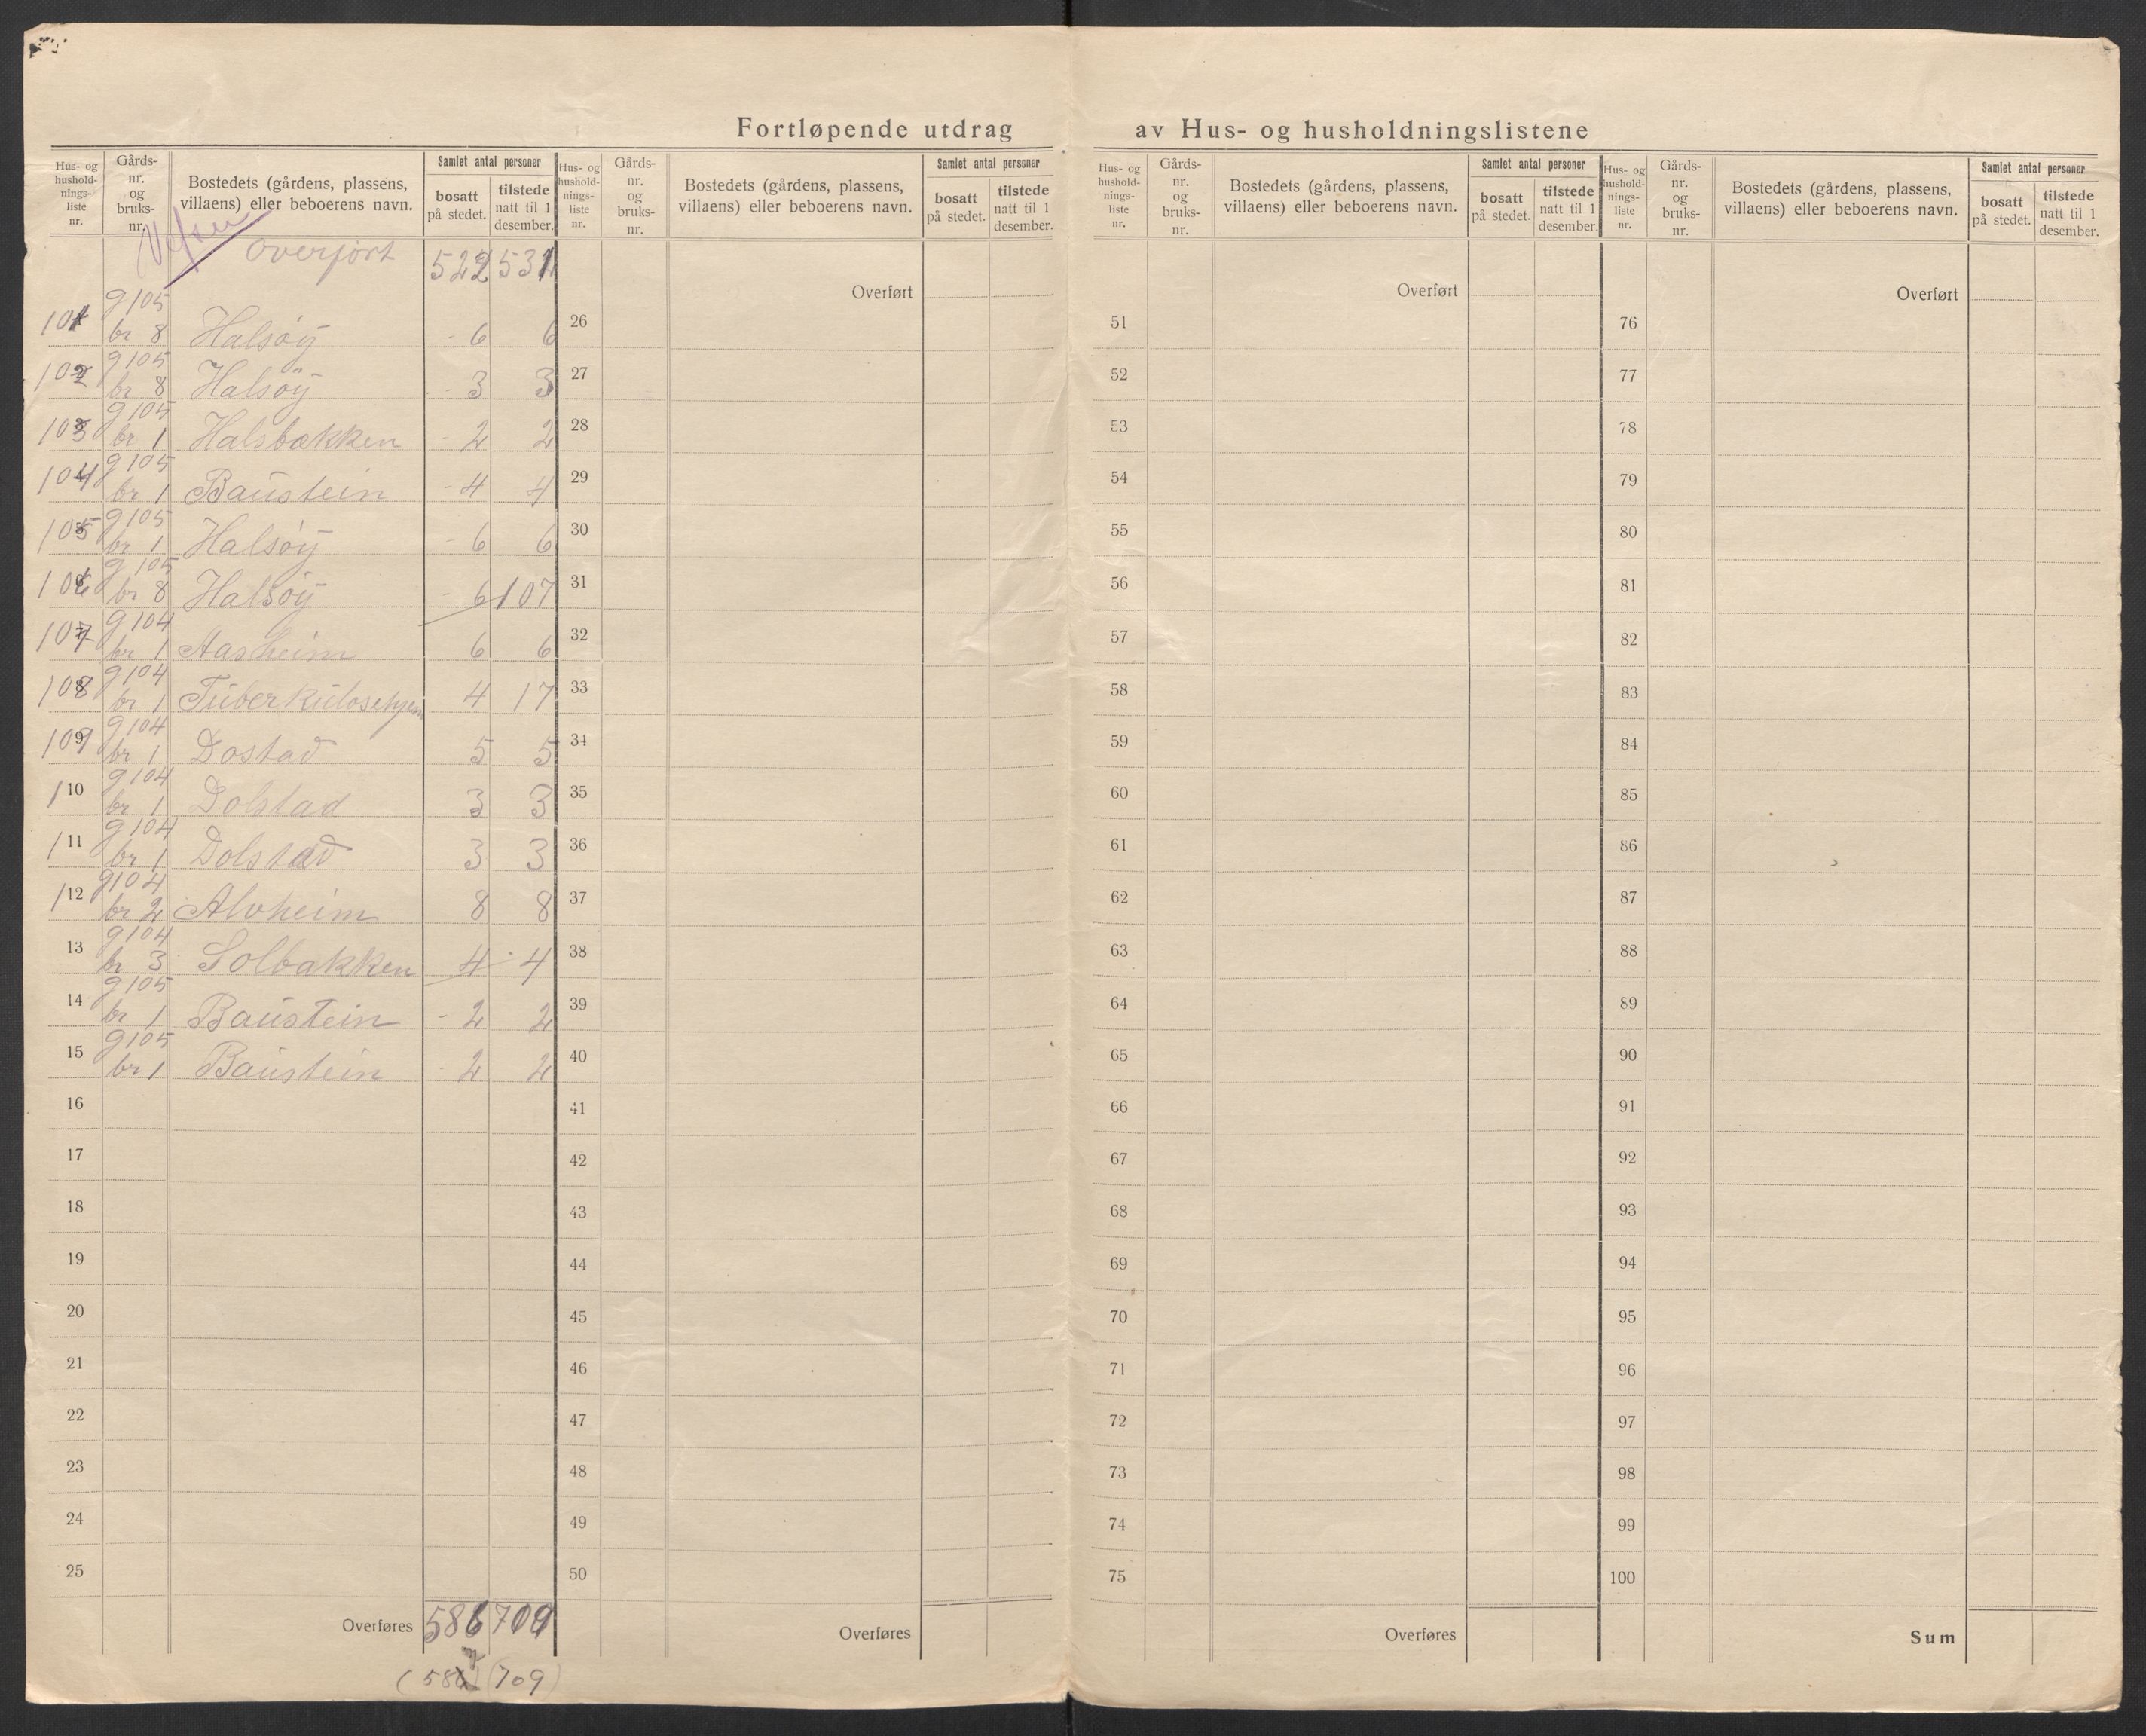 Fortløpende utdrag av Hus- og husholdningslistene
Hus- og husholdnings- liste nr. | Gårds- nr. og bruks- nr. | Bostedets (gårdens, plassens, villaens) eller beboerens navn. | Samlet antal personer | bosatt på stedet. | tilstede natt til 1 desember.
Vefsn
overført 522 531
101 g 105 br 8 Halsöÿ - 6 6
102 g 105 br 8 Halsöÿ - 3 3
103 g 105 br 1 Halsbakken - 2 2
104 g 105 br 1 Baustein - 4 4
105 g 105 br 1 Halsöÿ - 6 6
106 g 105 br 8 Halsöÿ - 6 107
107 g 104 br 1 Aasheim 6 6
108 g 104 br 1 Tuberkulosehjem 4 17
109 g 104 br 1 Dostad 5 5
110 g 104 br 1 Dolstad 3 3
111 g 104 br 1 Dolstad 3 3
112 g 104 br 2 Alvheim 8 8
13 g 104 br 3 Solbakken 4 4
14 g 105 br 1 Baustein - 2 2
15 g 105 br 1 Baustein - 2 2
16
17
18
19
20
21
22
23
24
25
Overføres 586 709
(587) (709)
Hus- og husholdnings- liste nr. | Gårds- nr. og bruks- nr. | Bostedets (gårdens, plassens, villaens) eller beboerens navn. | Samlet antal personer | bosatt på stedet. | tilstede natt til 1 desember.
Overført
26
27
28
29
30
31
32
33
34
35
36
37
38
39
40
41
42
43
44
45
46
47
48
49
50
Overføres
Hus- og husholdnings- liste nr. | Gårds- nr. og bruks- nr. | Bostedets (gårdens, plassens, villaens) eller beboerens navn. | Samlet antal personer | bosatt på stedet. | tilstede natt til 1 desember.
Overført
51
52
53
54
55
56
57
58
59
60
61
62
63
64
65
66
67
68
69
70
71
72
73
74
75
Overføres
Hus- og husholdnings- liste nr. | Gårds- nr. og bruks- nr. | Bostedets (gårdens, plassens, villaens) eller beboerens navn. | Samlet antal personer | bosatt på stedet. | tilstede natt til 1 desember.
Overført
76
77
78
79
80
81
82
83
84
85
86
87
88
89
90
91
92
93
94
95
96
97
98
99
100
Sum